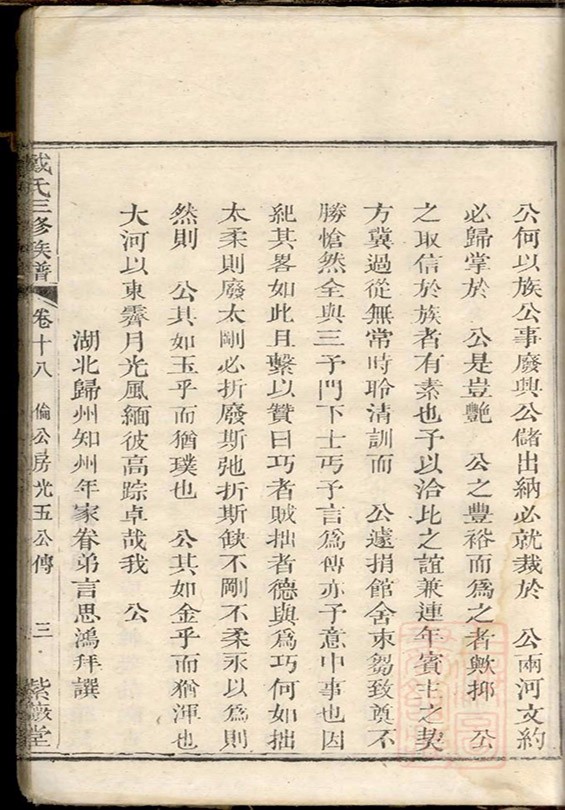 公何以族公事廢興公儲出納必就裁於　公兩河文約
必歸掌於　公是豈艷　公之豐裕而爲之者歟抑　公
之取信於族者有素也予以洽比之誼兼連年賓主之契
方冀過從無常時聆清訓而　公遽捐館舍束芻致奠不
勝愴然全與三予門下士丐予言爲傳亦予意中事也因
紀其畧如此且繫以贊曰巧者賊拙者德與爲巧何如拙
太柔則廢太剛必折廢斯弛折斯缺不剛不柔永以爲則
然則　公其如玉乎而猶璞也　公其如金乎而猶渾也
大河以東霽月光風緬彼高踪卓哉我　公
湖北歸州知州年家眷弟言思鴻拜譔
戴氏三修族譜　卷十八　倫公房光五公傳　三　紫薇堂